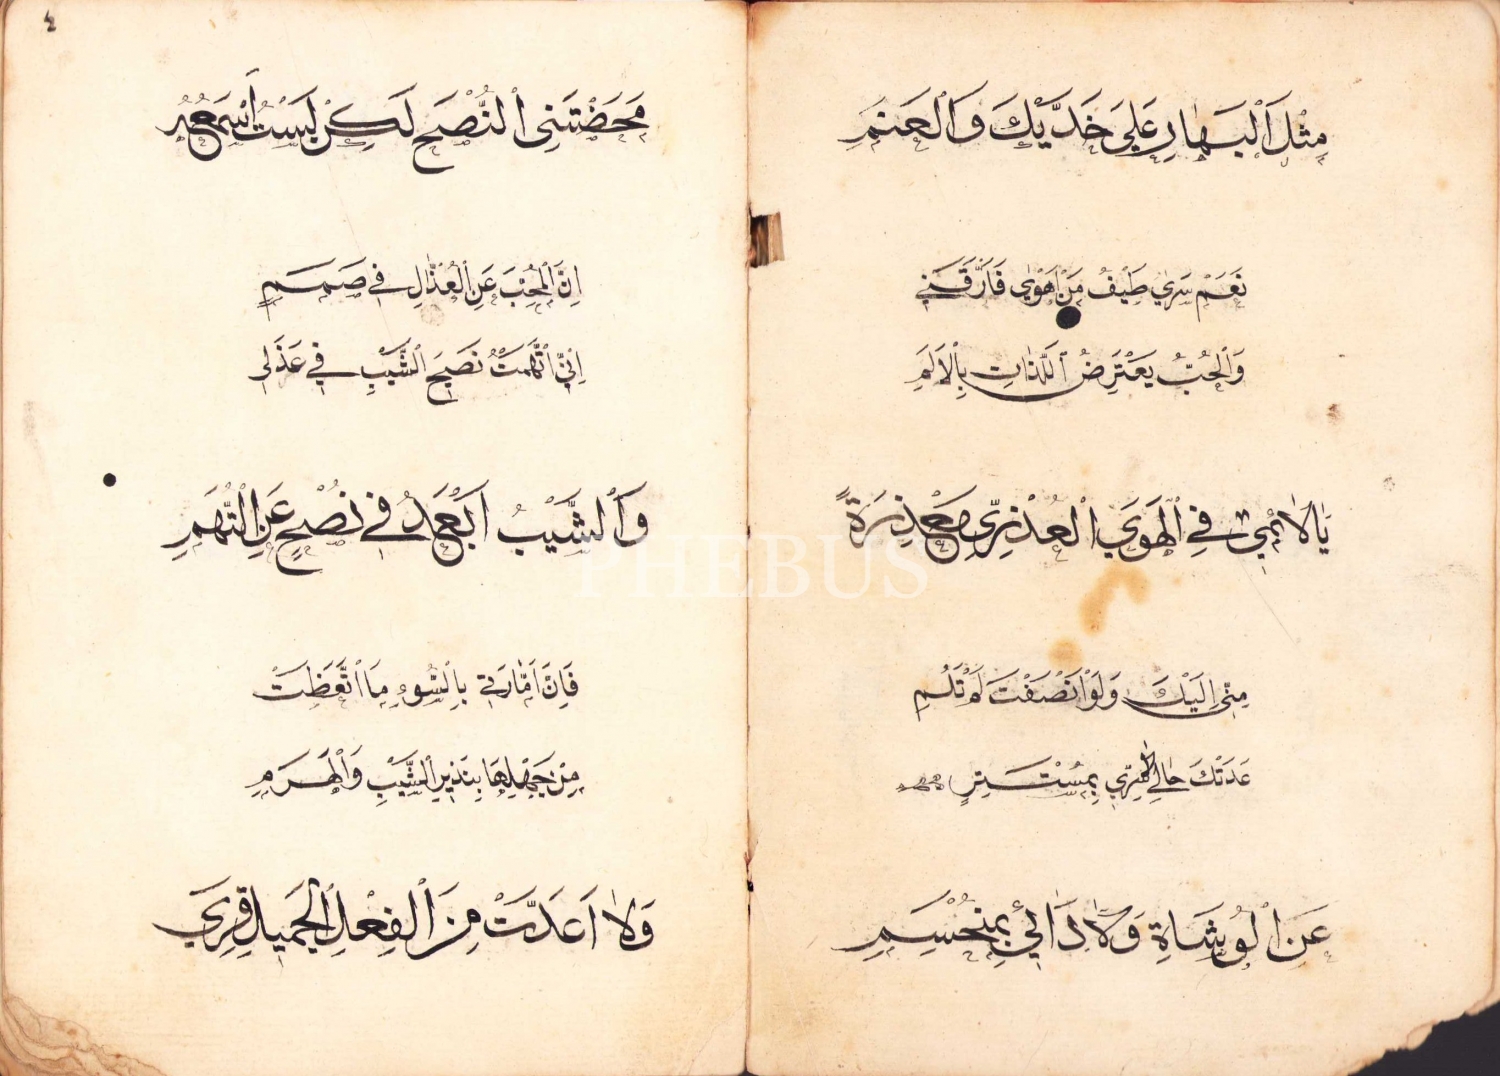 مِثْلَ ٱلْبَهَارِ عَلَىٰ خَدَّيْكَ وَٱلْعَنَمِ
نَعَمْ سَرٰي طَيْفُ مَنْ اَهْوٰي فَاَرَّقَنِي
وَٱلْحُبُّ يَعْتَرِضُ ٱللَّذَّاتِ بِٱلْاَلَمِ
يَا لَا ئِمِي فِي ٱلْهَوَي ٱلْعُذْرِيِّ مَعْذِرَةً
مِنّي اِلَيْكَ وَلَوْ اَنْصَفْتَ لَمْ تَلُمِ
عَدَتْكَ حَالِي لَا سِرِّي بِمُسْتَتِرٍ
عَنِ ٱلْوُشَاةِ وَلَا دَائِي بِمُنْحَسِمِ
٤
مَحَضْتَنِي ٱلنُّصْحَ لَكِنْ لَسْتُ اَسْمَعُهُ
اِنَّ ٱلْمُحِبَّ عَنِ ٱلْعُذَّالِ فِي صَمَمِ
اِنِّي ٱتَّهَمْتُ نَصِيحَ ٱلشَّيْبِ فِي عَذَلِي
وَٱلشَّيْبُ اَبْعَدُ فِي نُصْحٍ عَنِ ٱلتُّهَمِ
فَاِنَّ اَمَّارَتِي بِٱلسُّوءِ مَا ٱتَّعَظَتْ
مِنْ جَهْلِهَا بِنَذِيرِ ٱلشَّيْبِ وَٱلْهَرَمِ
وَلَا اَعَدَّتْ مِنَ ٱلْفِعْلِ ٱلْجَمِيلِ قِرَي
PHEBUS